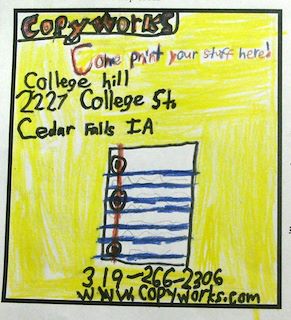 Copyworks
Come print your stuff here!
College hill
2227 College St
Cedar Falls IA
319-266-2306
www.copyworks.com